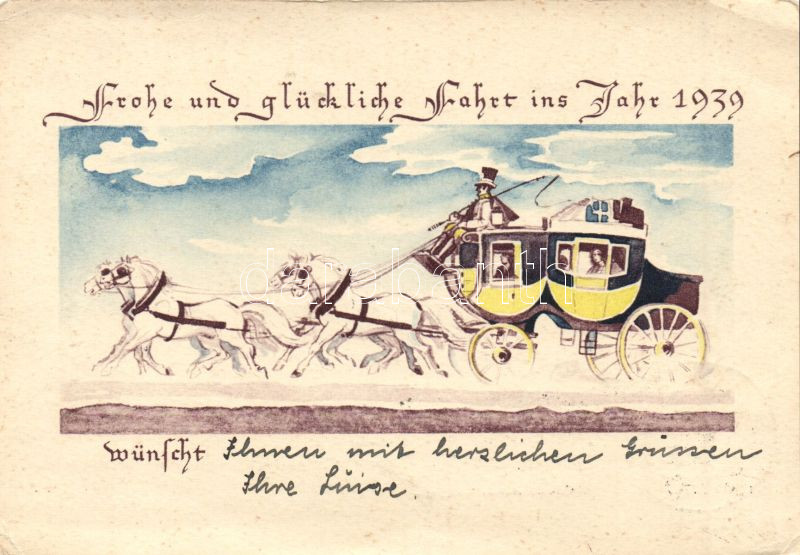 Frohe und glückliche Fahrt ins Jahr 1939
darabanth
wünscht Ihnen mit herzlichen Grüssen
Ihre Luise.